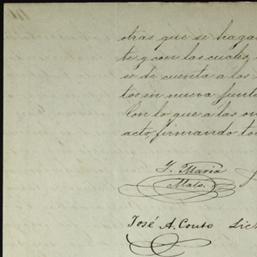 otras que se hagan
te y con las cuales,
se de cuenta a los
tos en nueva junta
Con lo que a las on
acto, firmando to
J. Maria
Mata.
José A. Couto Lic